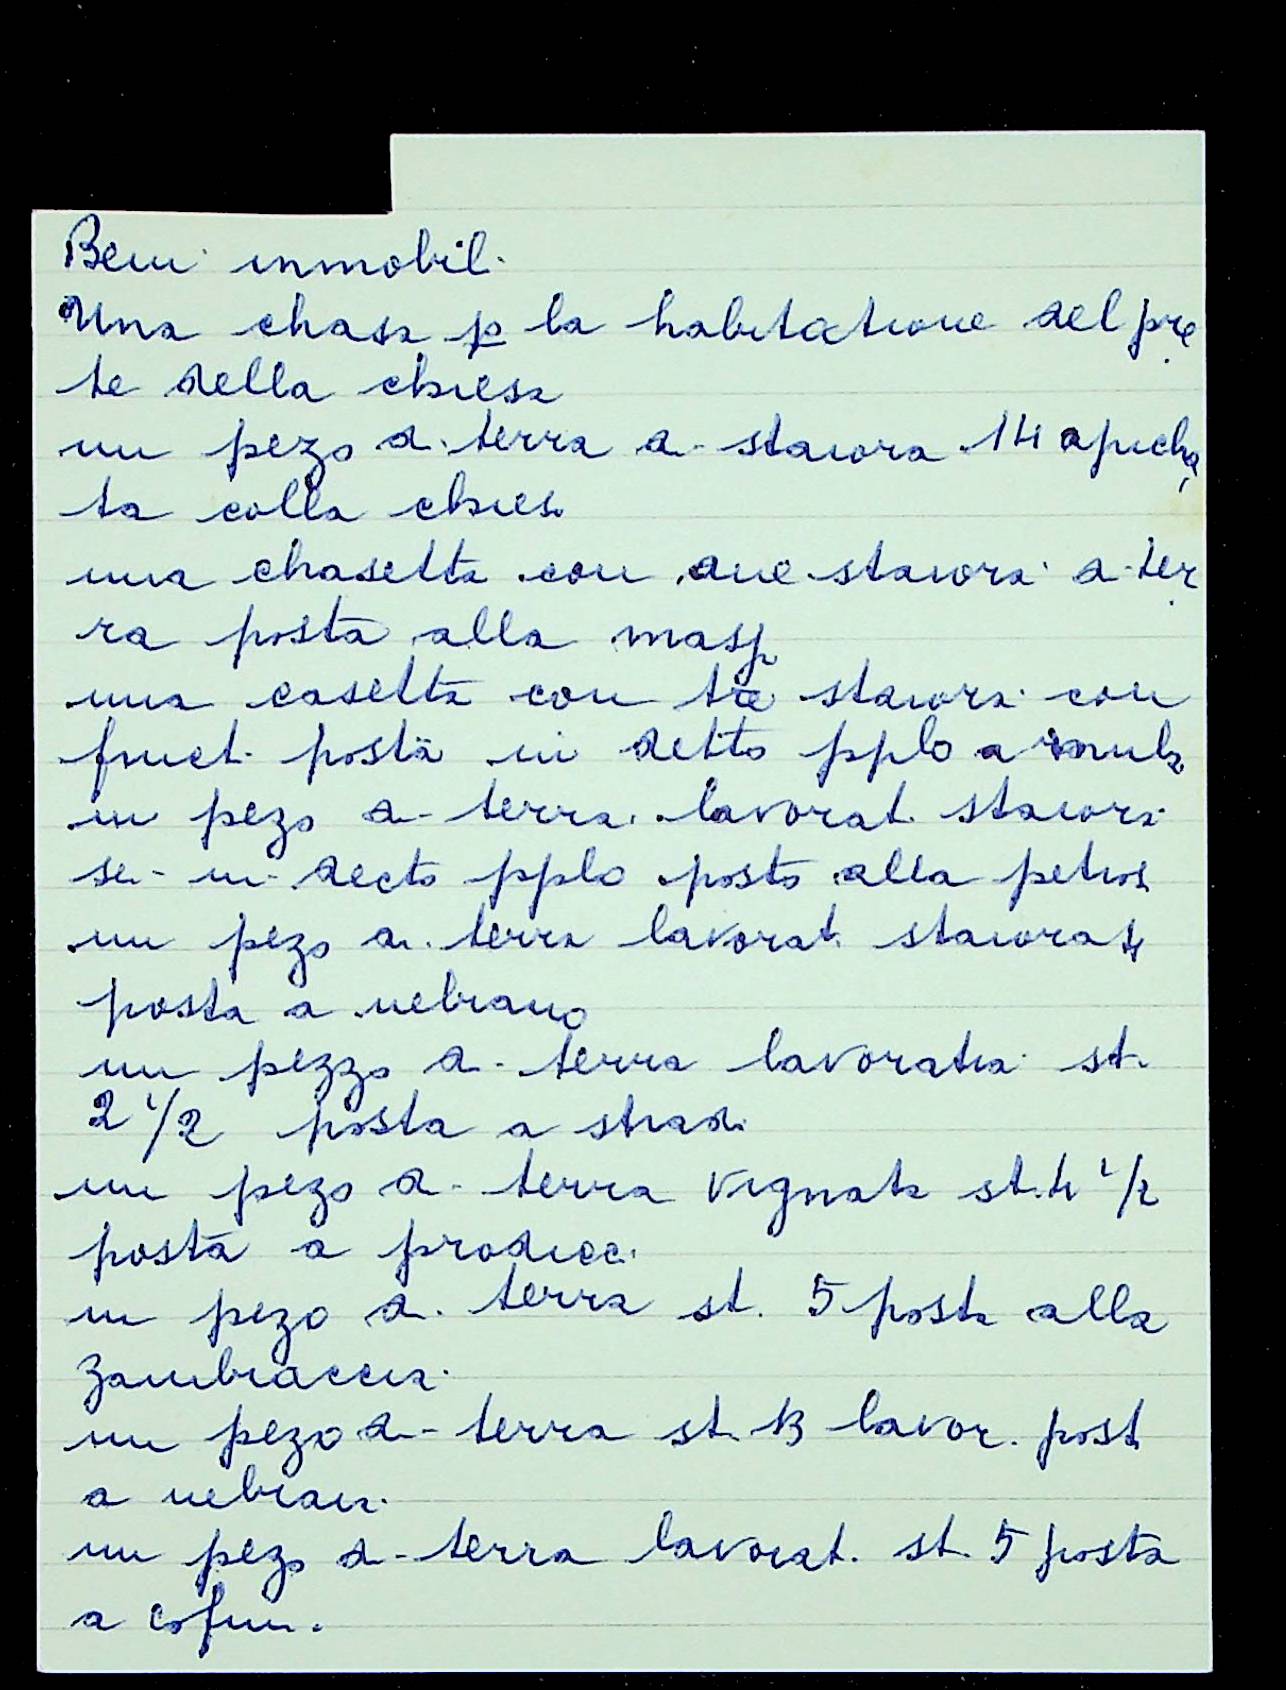 Beni inmobili
Una chasa p la habitatione del pre
te della chiesa
un pezo di terra di staiora 14 apicha
ta colla chiesa
una chasetta con due staiora di ter
ra posta alla
una casetta con tre staiora con
fructi posta in detto pplo a
un pezo di terra lavorat. staiora
sei in decto pplo posto alla
un pezo di terra lavorat. staiora 4
posta a nebiano
un pezzo di terra lavoratia st.
2 1/2 posta a strada
un pezo di terra vignata st. 4 1/2
posta a
un pezo di terra st. 5 posta alla
zambraccia
un pezo di terra st. 13 lavor. post
a
un pezo di terra lavorat. st. 5 posta
a